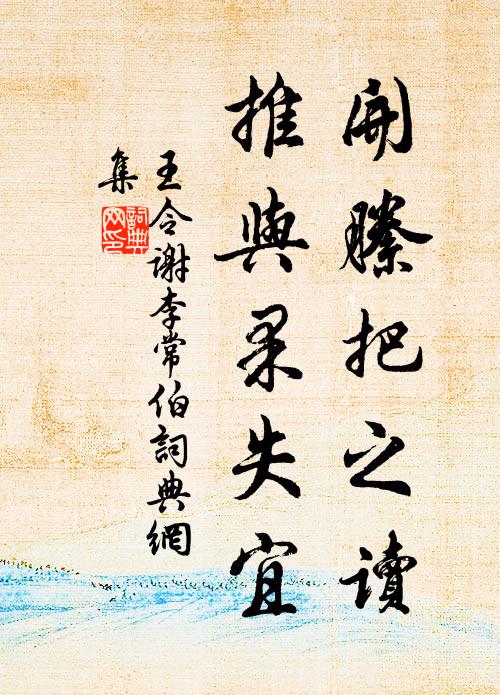 開縢把之讀
推與果失宜
王令謝李常伯詞典網
集
詞典網印